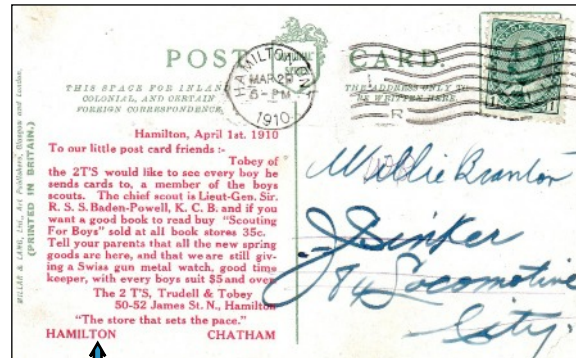 POST CARD.
HAMILTON
MAR 29
5-PM
1910
THIS SPACE FOR INLAND
COLONIAL, AND CERTAIN
FOREIGN CORRESPONDENCE.
THE ADDRESS ONLY TO
BE WRITTEN HERE.
MILLAR & LANG, Ltd., Art Publishers, Glasgow and London.
(PRINTED IN BRITAIN.)
Hamilton, April 1st. 1910
To our little post card friends :-
Tobey of
the 2T'S would like to see every boy he
sends cards to, a member of the boys
scouts. The chief scout is Lieut-Gen. Sir.
R. S. S. Baden-Powell, K. C. B. and if you
want a good book to read buy "Scouting
For Boys" sold at all book stores 35c.
Tell your parents that all the new spring
goods are here, and that we are still giv-
ing a Swiss gun metal watch, good time
keeper, with every boys suit $5 and over
The 2 T'S, Trudell & Tobey
50-52 James St. N., Hamilton
"The store that sets the pace."
HAMILTON CHATHAM
Willie Branton
84 Locomotive
City.